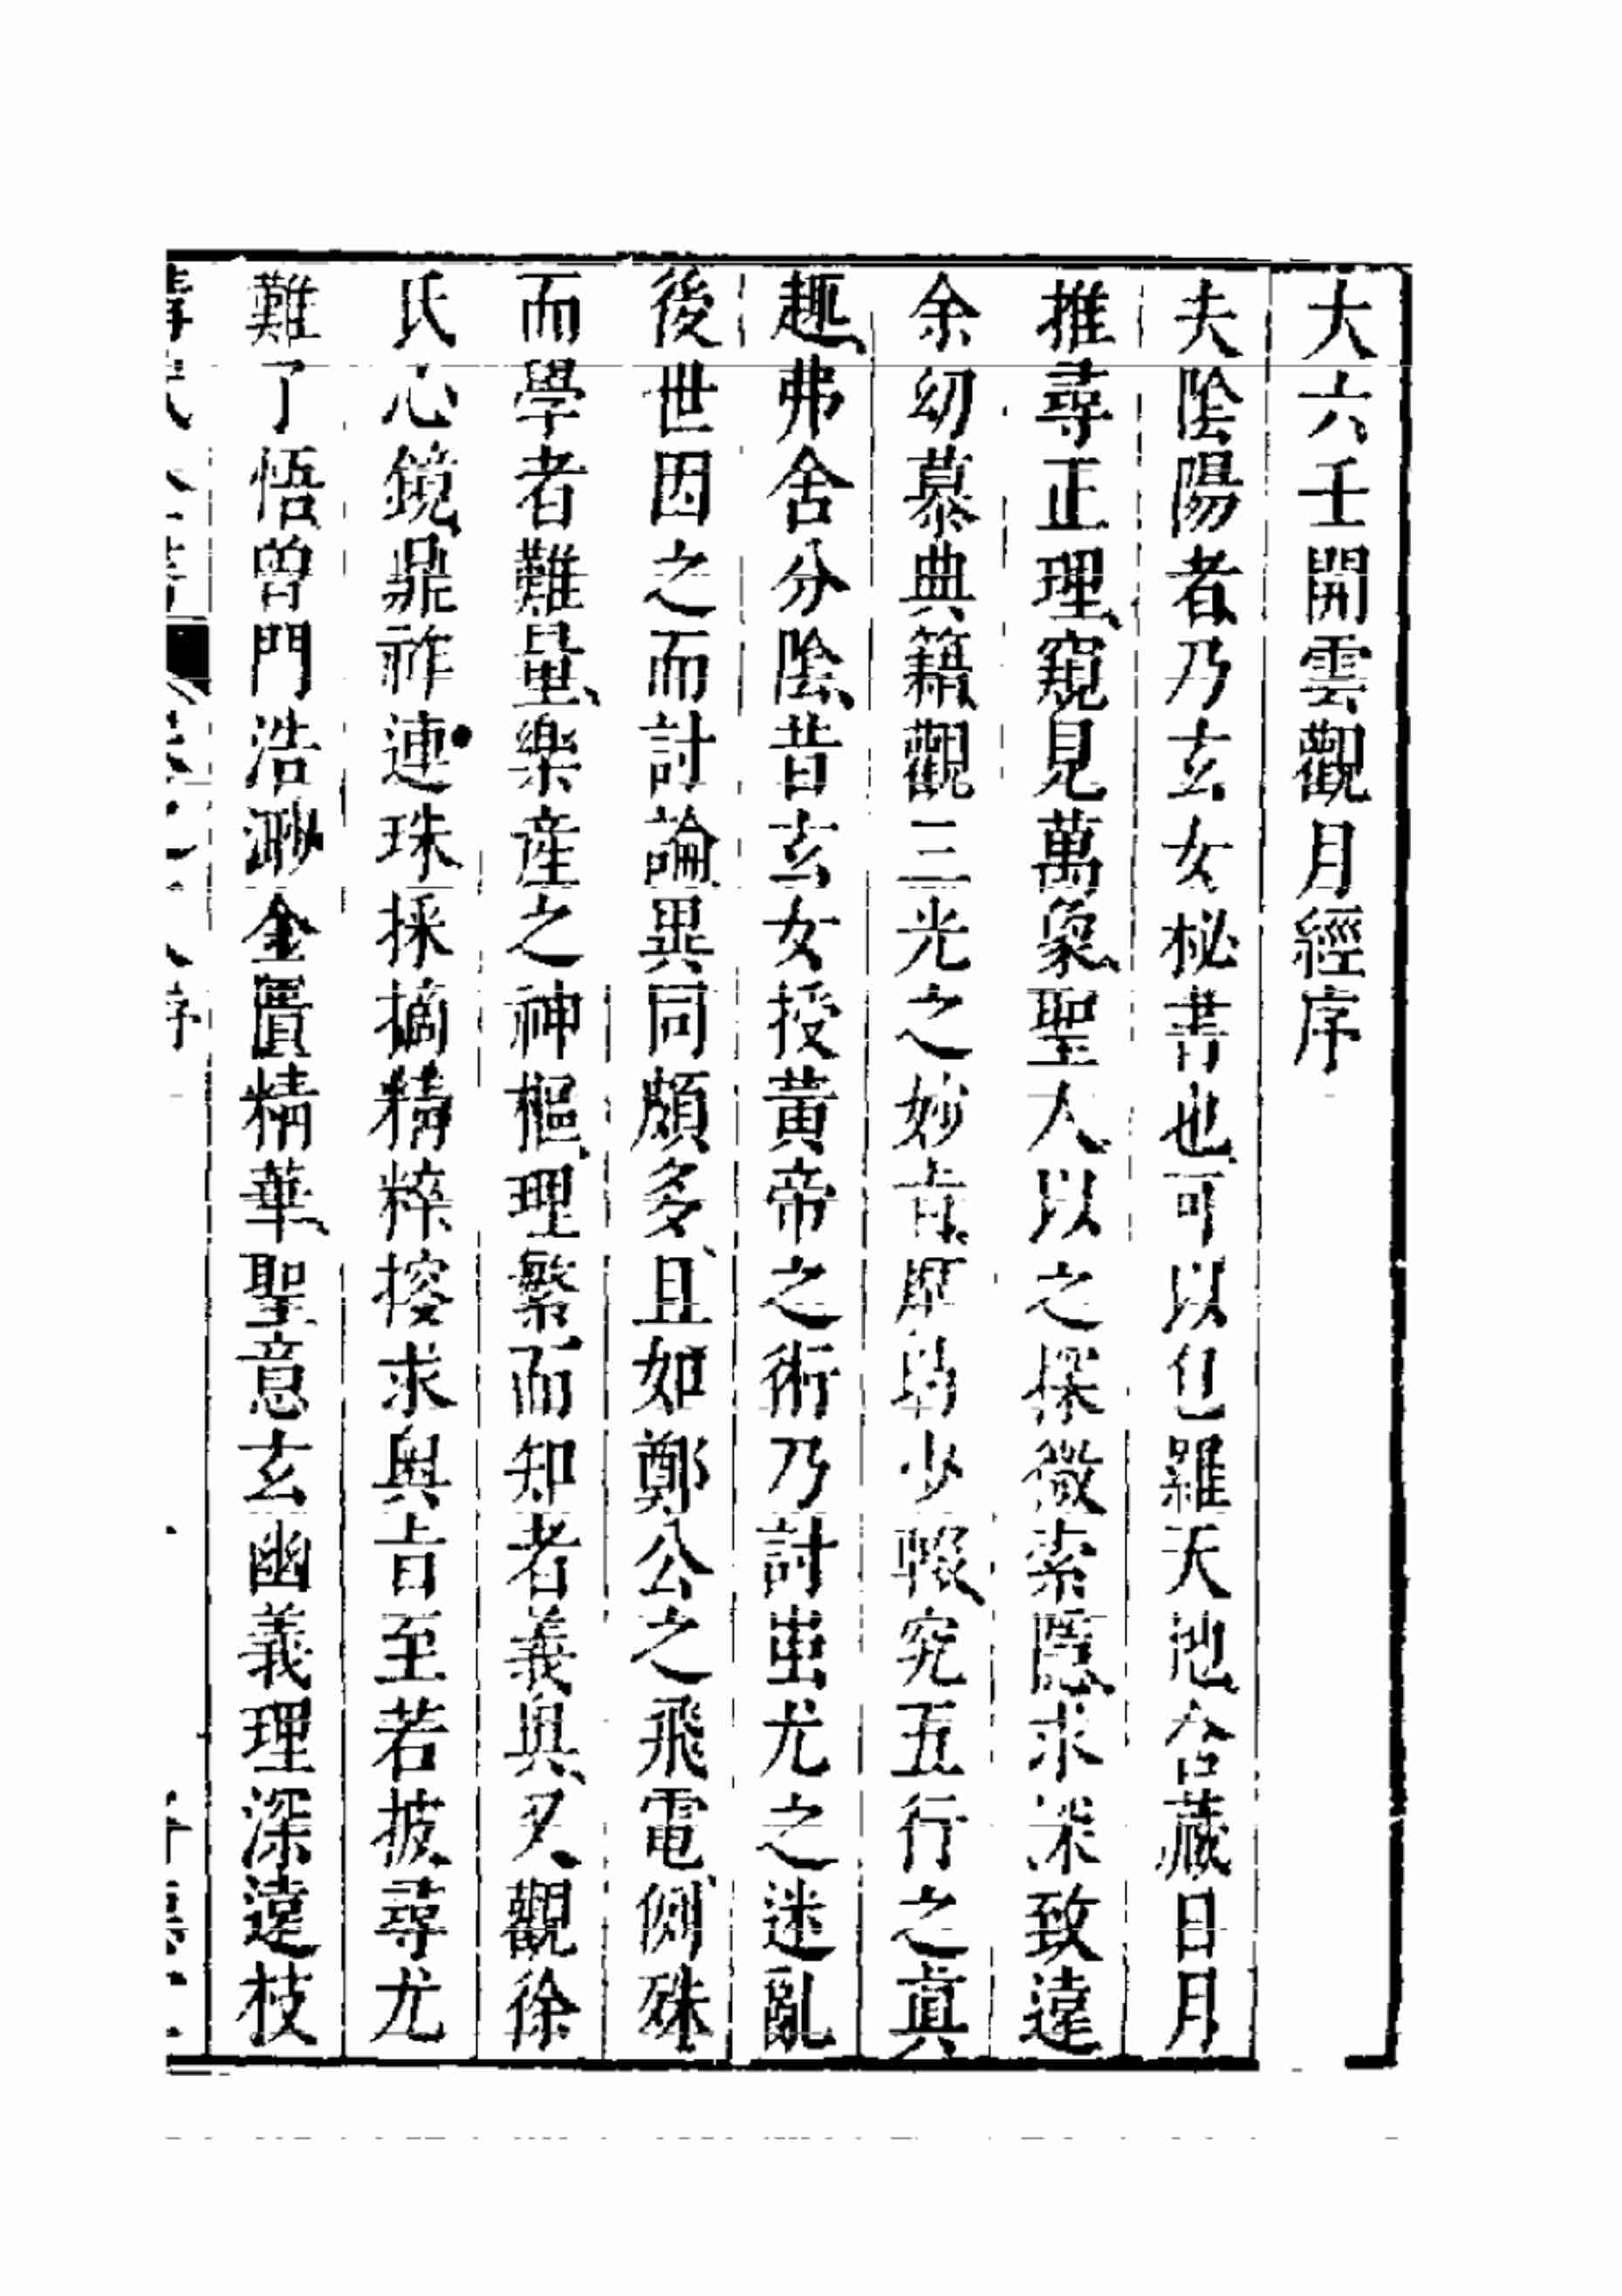 大六壬開雲觀月經序
夫陰陽者乃玄女秘書也可以包羅天地含藏日月
推尋正理窺見萬象聖人以之探微索隱求深致遠
余幼慕典籍觀三光之妙肯少輟究五行之真
趣弗舍分陰昔玄女授黃帝之術乃討蚩尤之迷亂
後世因之而討論異同頗多且如鄭公之飛電側殊
而學者難量樂産之神樞理繁而知者義奥又觀徐
氏心鏡鼎祚連珠採摘精粹搜求奥旨至若披尋尤
難了悟曾門浩渺金匱精華聖意玄幽義理深遠枝